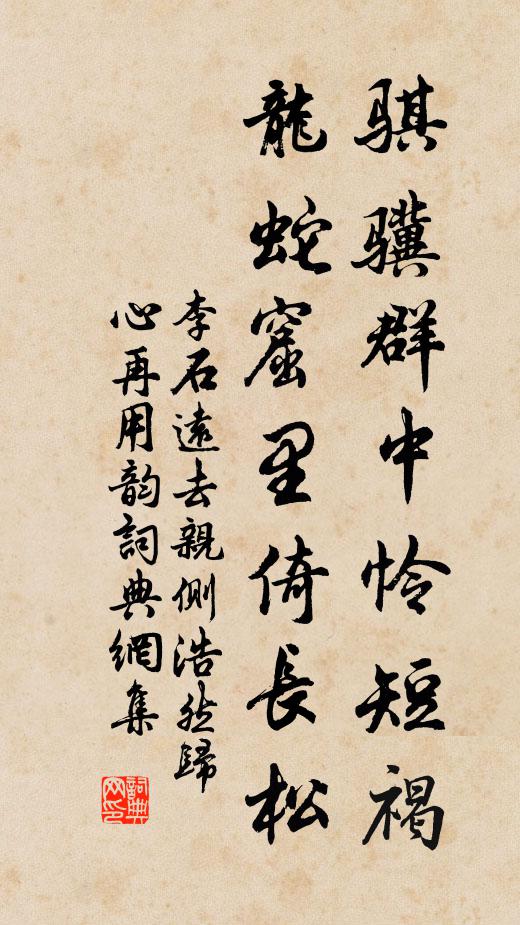 骐骥群中怜短褐
龍蛇窟里倚長松
李石遠去親側浩然歸
心再用韵詞典網集
詞典网印